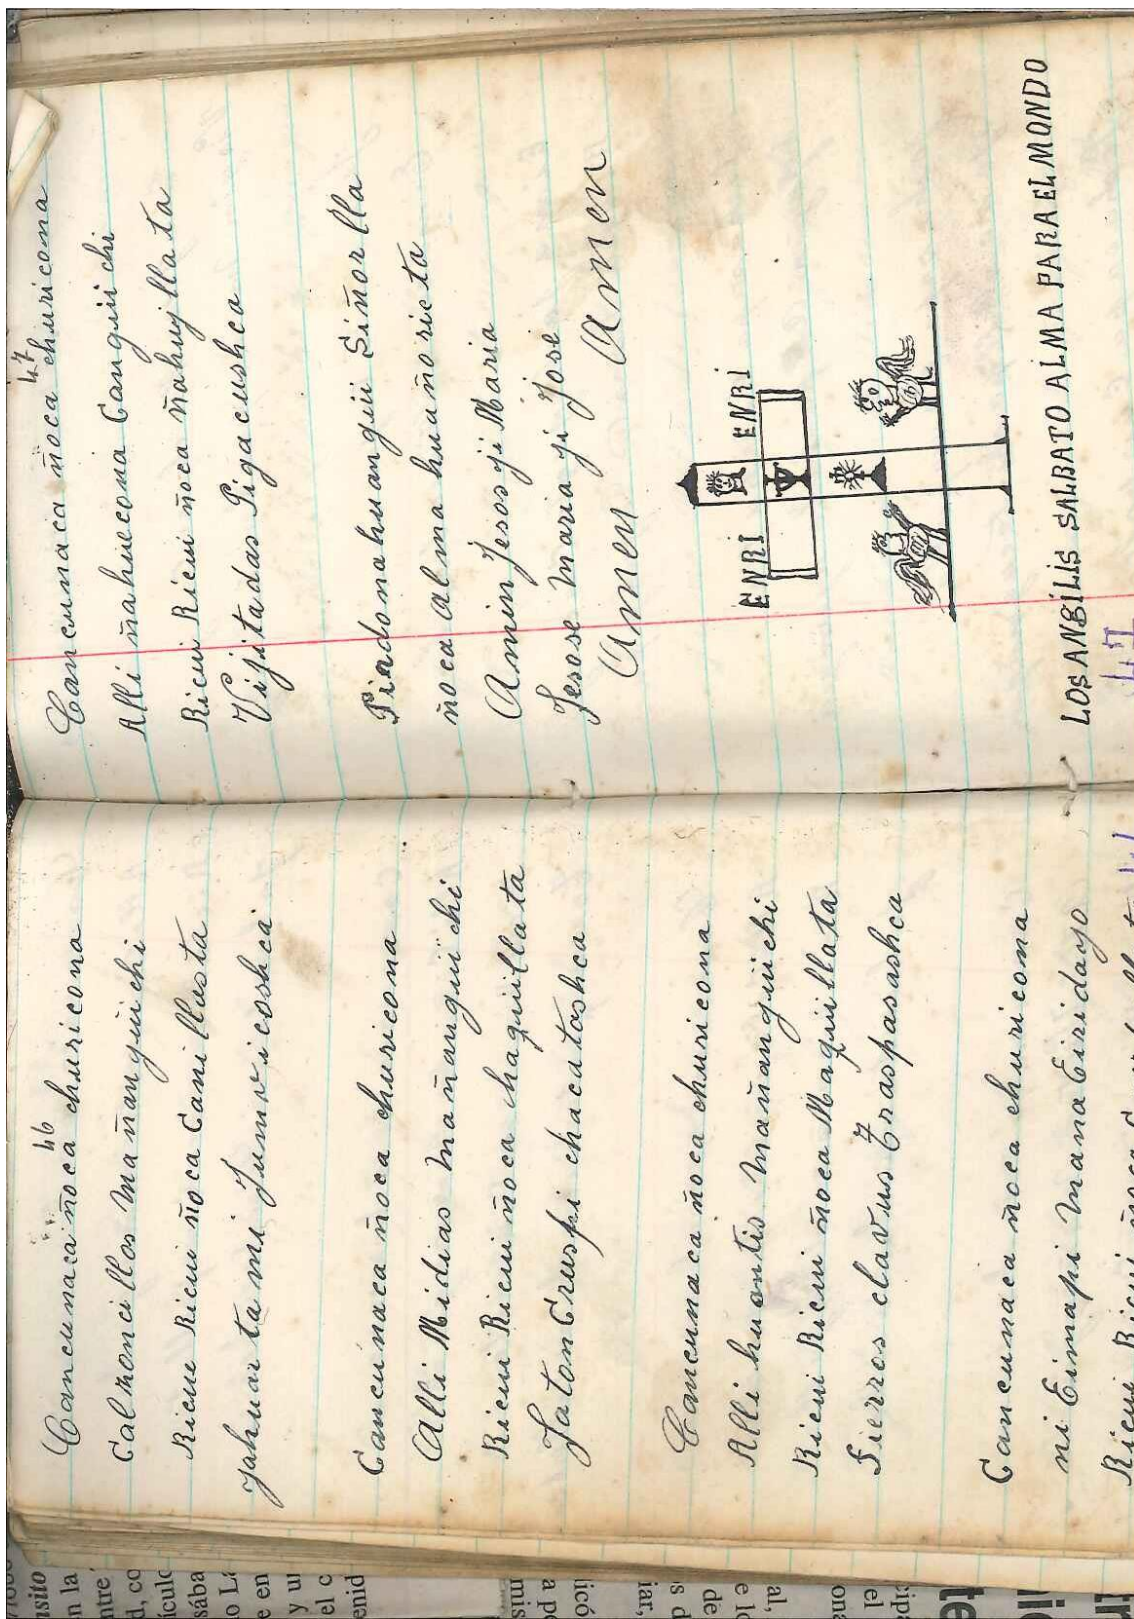 46
Cancunaca ñoca churicona
Calzoncillos mañangüichi
Ricue Ricui ñoca Canillasta
yahuarta mi Jumvicoshca
Cancunaca ñoca churicona
Alli Midias mañangüichi
Ricui Ricui ñoca chaquillata
Jaton Cruspi chacatashca
Cancunaca ñoca churicona
Alli huantis mañangüichi
Ricui Ricui ñoca Maquillata
Fierros clavus Traspasashca
Cancunaca ñoca churicona
ni Eimapi mana Eiridayo
Ricui Ricui ñoca
47
Cancunaca ñoca churicona
Alli ñahuicona Cangüichi
Ricui Ricui ñoca ñahuyllata
Vijitadas Pigacushca
Piadomahuangüi Siñorlla
ñoca alma huañoricta
Amin Jesos yi Maria
Jesose Maria yi Jose
Amen Amen
ENRI ENRI
LOS ANGILIS SALBATO ALMA PARA EL MONDO
47